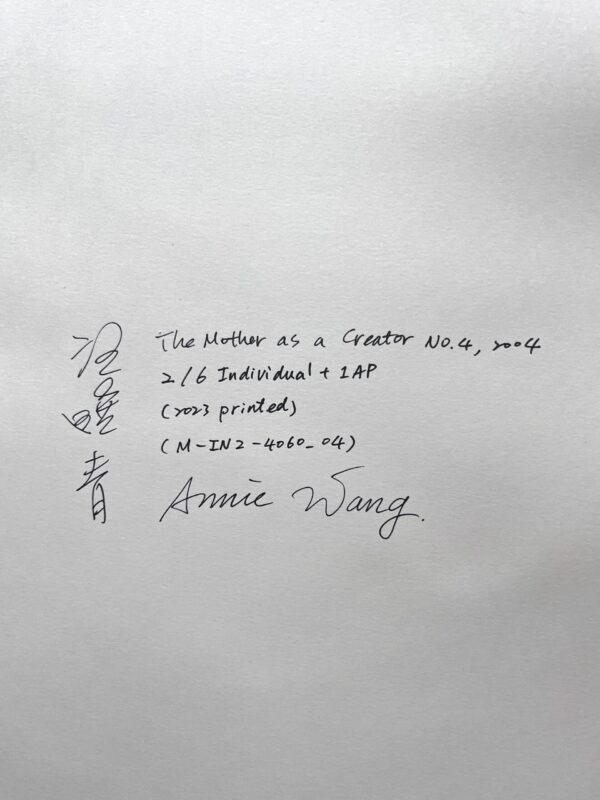 汪曉青
The Mother as a Creator No.4, 2004
2/6 Individual + 1AP
(2023 printed)
(M-IN2-4060_04)
Annie Wang.